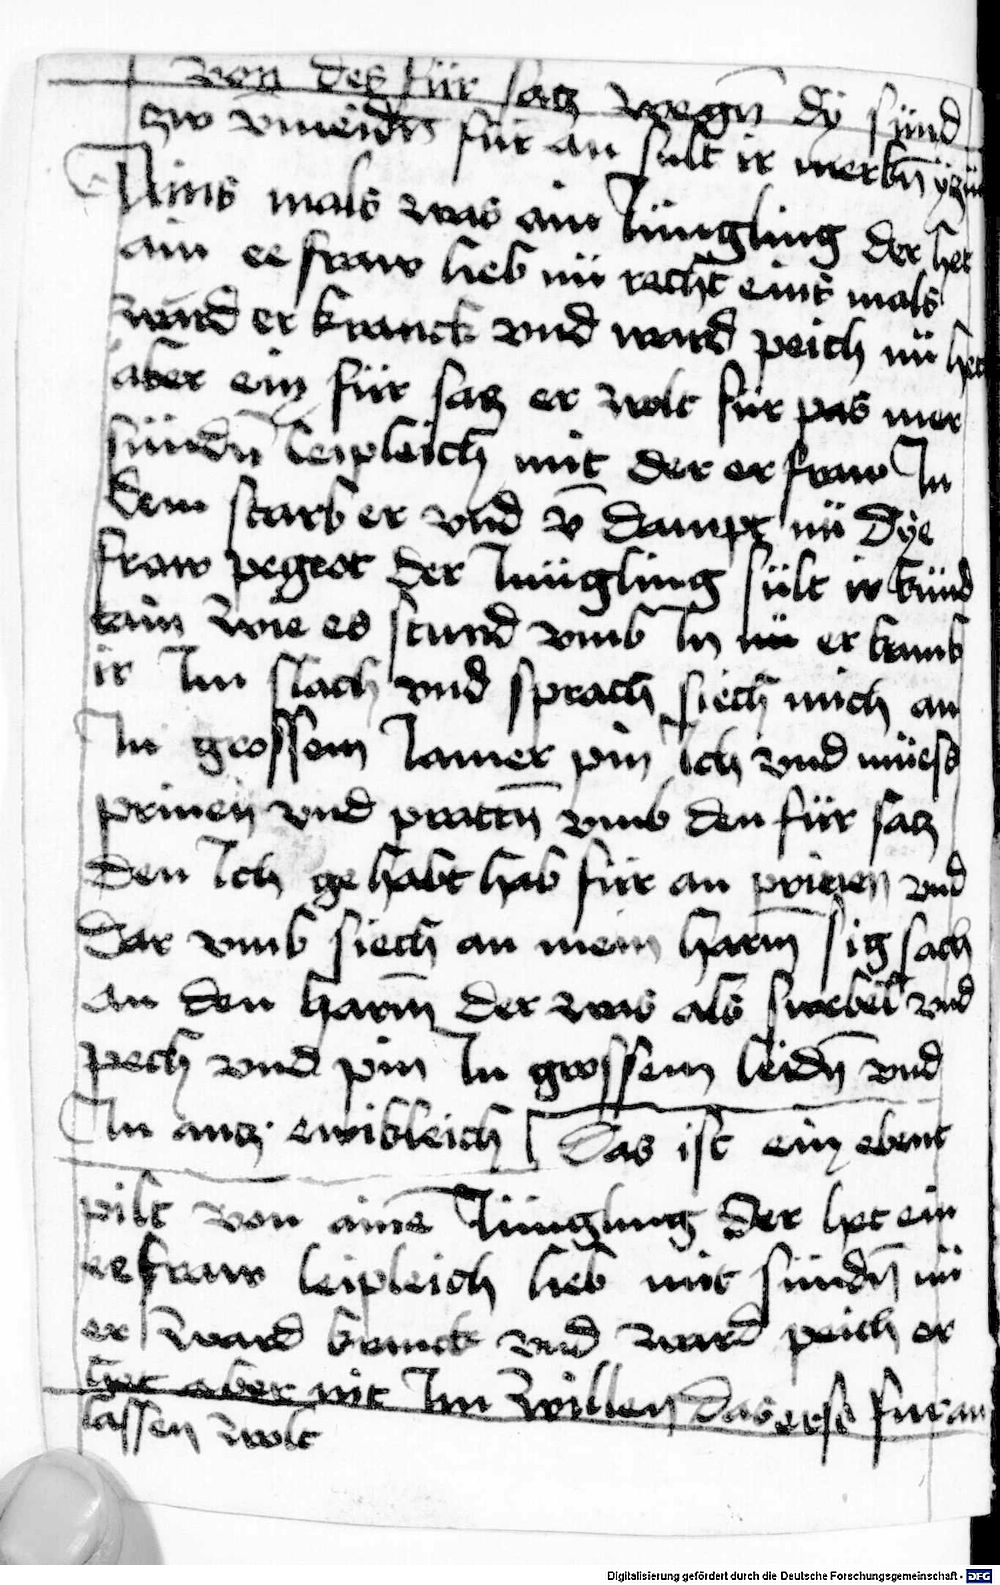 von des für satz wegn̄ dy sünd
zw v̄meidn̄ für an sult ir merkn̄
Ains mals was ain Jüngling der het
ain eefraw lieb nü recht eins mals
ward er kranck vnd ward peich nü het
aber ein für satz er wolt für pas mer
sündn̄ leipleich mit der eefraw In
dem starb er vnd v̄dampt nü Dye
fraw pegert der Jüngling sült ir künd
tain wie es stund vmb In nü er kamb
ir Im slach vnd sprach siech mich an
In grossem Jamer pin Ich vnd müess
prinen vnd prattn̄ vmb den für satz
den Ich gehabt hab für an prinen vnd
Dar vmb siech an mein harm̄ sig sach
an den harm̄ der was als swebel vnd
pech vnd pin In grossem leidn̄ vnd
In antz ewikleich Das ist ein ebent
pilt von aine Jüngling Der het ein
eefraw leipleich lieb mit sündn̄ nü
er ward kranck vnd ward peich er
het aber nit Im willen das ers für an
lassen wolt
Digitalisierung gefördert durch die Deutsche Forschungsgemeinschaft - DFG